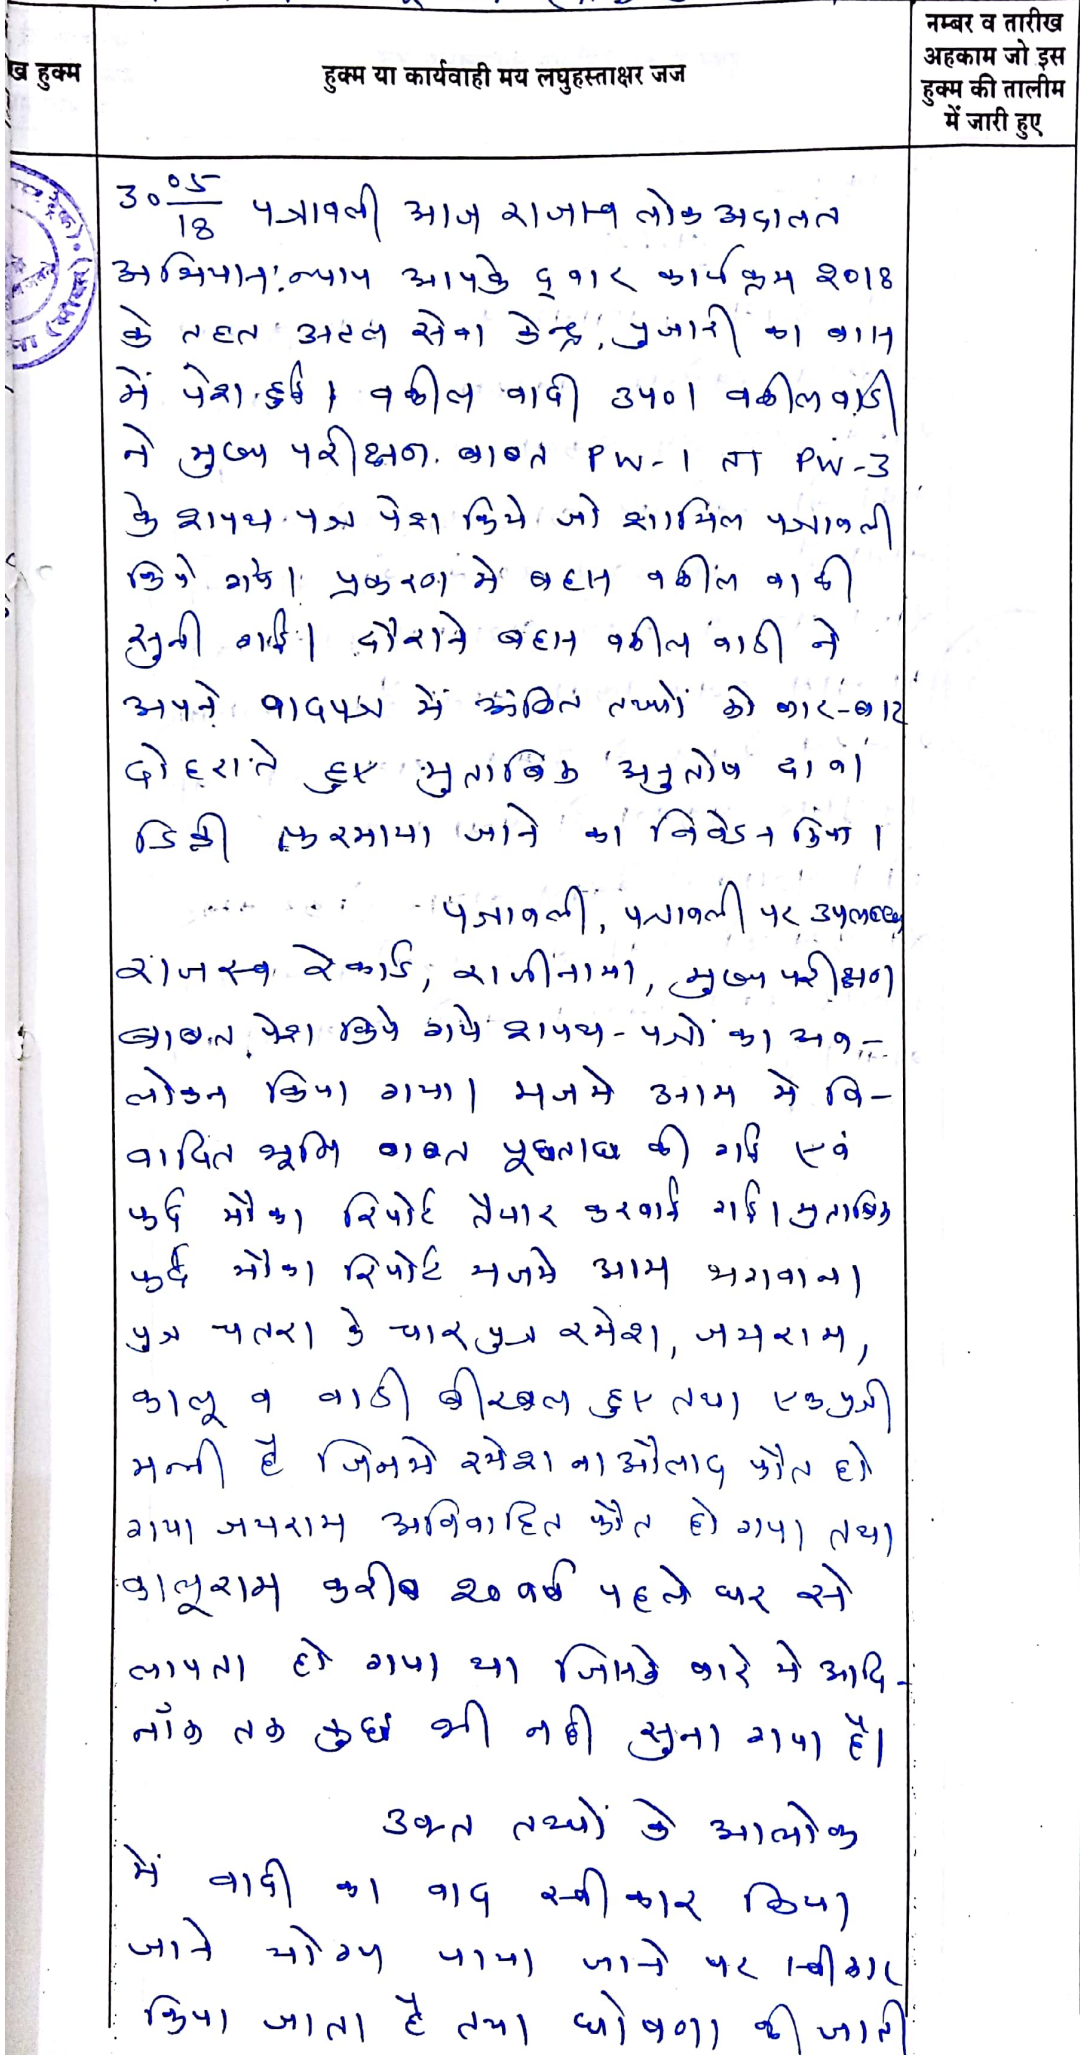 ख हुक्म
हुक्म या कार्यवाही मय लघुहस्ताक्षर जज
नम्बर व तारीख
अहकाम जो इस
हुक्म की तालीम
में जारी हुए
30 05/18 पत्रावली आज राजस्व लोक अदालत
अभियान: न्याय आपके द्वार कार्यक्रम 2018
के तहत अटल सेवा केन्द्र, पुजारी का बास
में पेश हुई। वकील वादी उप0। वकील वादी
ने मुख्य परीक्षण बाबत PW-1 ता PW-3
के शपथ पत्र पेश किये जो शामिल पत्रावली
किये गये। प्रकरण में बहस वकील वादी
सुनी गई। दौराने बहस वकील वादी ने
अपने वादपत्र में अंकित तथ्यों को बार-बार
दोहराते हुए मुताबिक अनुतोष दावा
डिक्री फरमाया जाने का निवेदन किया।
पत्रावली, पत्रावली पर उपलब्ध
राजस्व रेकार्ड, राजीनामा, मुख्य परीक्षण
बाबत पेश किये गये शपथ-पत्रों का अव-
लोकन किया गया। मजमे आम में वि-
वादित भूमि बाबत पूछताछ की गई एवं
फर्द मौका रिपोर्ट तैयार करवाई गई। मुताबिक
फर्द मौका रिपोर्ट मजमे आम भगवाना
पुत्र चतरा के चार पुत्र रमेश, जयराम,
कालू व वादी बीरबल हुए तथा एक पुत्री
मन्नी है जिनमें रमेश ना औलाद फौत हो
गया जयराम अविवाहित फौत हो गया तथा
कालूराम करीब 20 वर्ष पहले घर से
लापता हो गया था जिसके बारे में आदि-
नाँक तक कुछ भी नही सुना गया है।
उक्त तथ्यों के आलोक
में वादी का वाद स्वीकार किया
जाने योग्य पाया जाने पर स्वीकार
किया जाता है तथा घोषणा की जाती